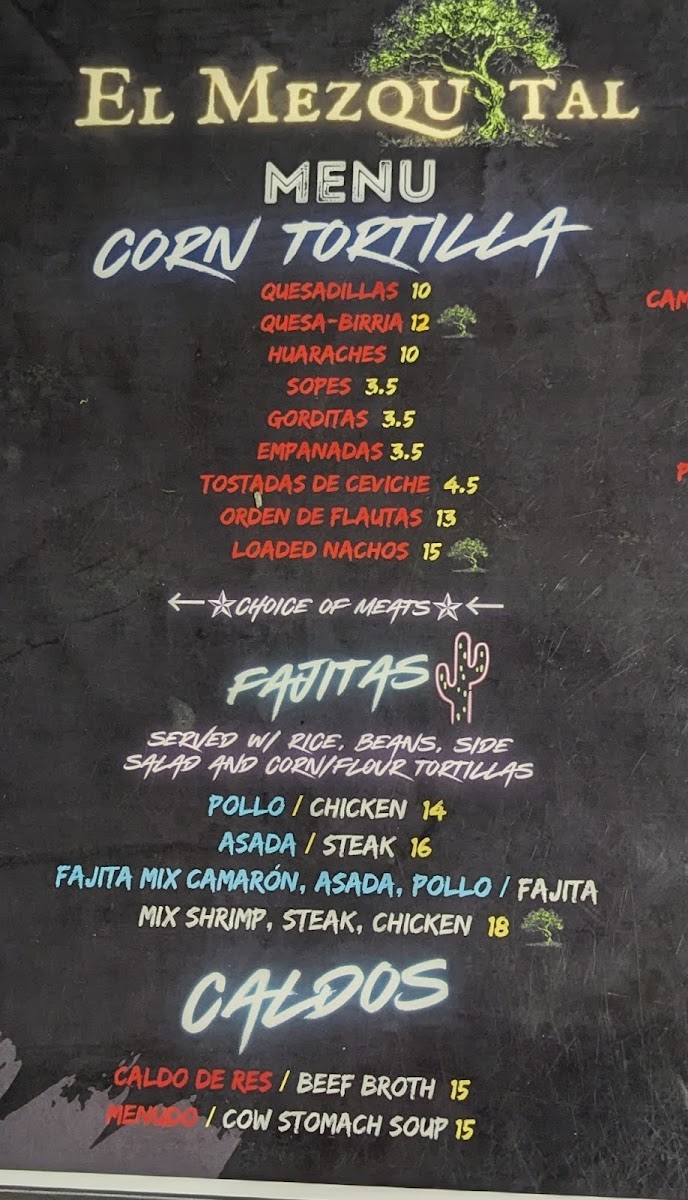 EL MEZQUITAL
MENU
CORN TORTILLA
QUESADILLAS 10
QUESA-BIRRIA 12
HUARACHES 10
SOPES 3.5
GORDITAS 3.5
EMPANADAS 3.5
TOSTADAS DE CEVICHE 4.5
ORDEN DE FLAUTAS 13
LOADED NACHOS 15
←☆CHOICE OF MEATS☆←
FAJITAS
SERVED W/ RICE, BEANS, SIDE
SALAD AND CORN/FLOUR TORTILLAS
POLLO / CHICKEN 14
ASADA / STEAK 16
FAJITA MIX CAMARÓN, ASADA, POLLO / FAJITA
MIX SHRIMP, STEAK, CHICKEN 18
CALDOS
CALDO DE RES / BEEF BROTH 15
MENUDO / COW STOMACH SOUP 15